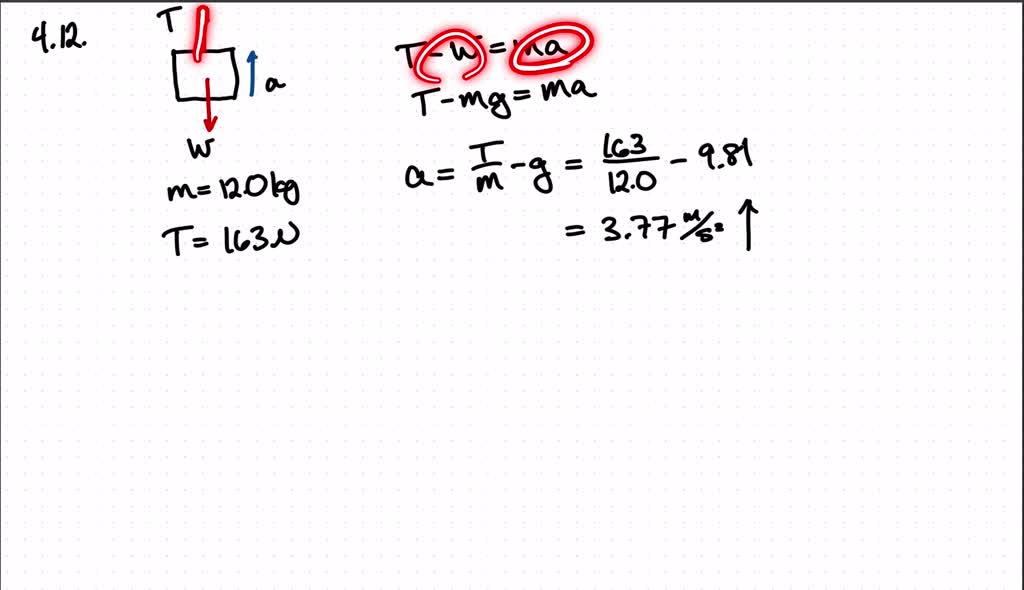 4.12.
T
a
W
m = 12.0 kg
T = 163 N
T - W = ma
T - mg = ma
a = T/m - g = 163/12.0 - 9.81
= 3.77 m/s² ↑